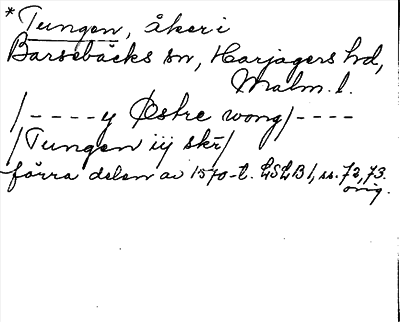 *Tungen, åker i
Barsebäcks sn, Harjagers hd,
Malm. l.
/----y Østre wong/----
/Tungen iij skr/
förra delen av 1570-t. LSLB 1, ss. 72, 73.
orig.